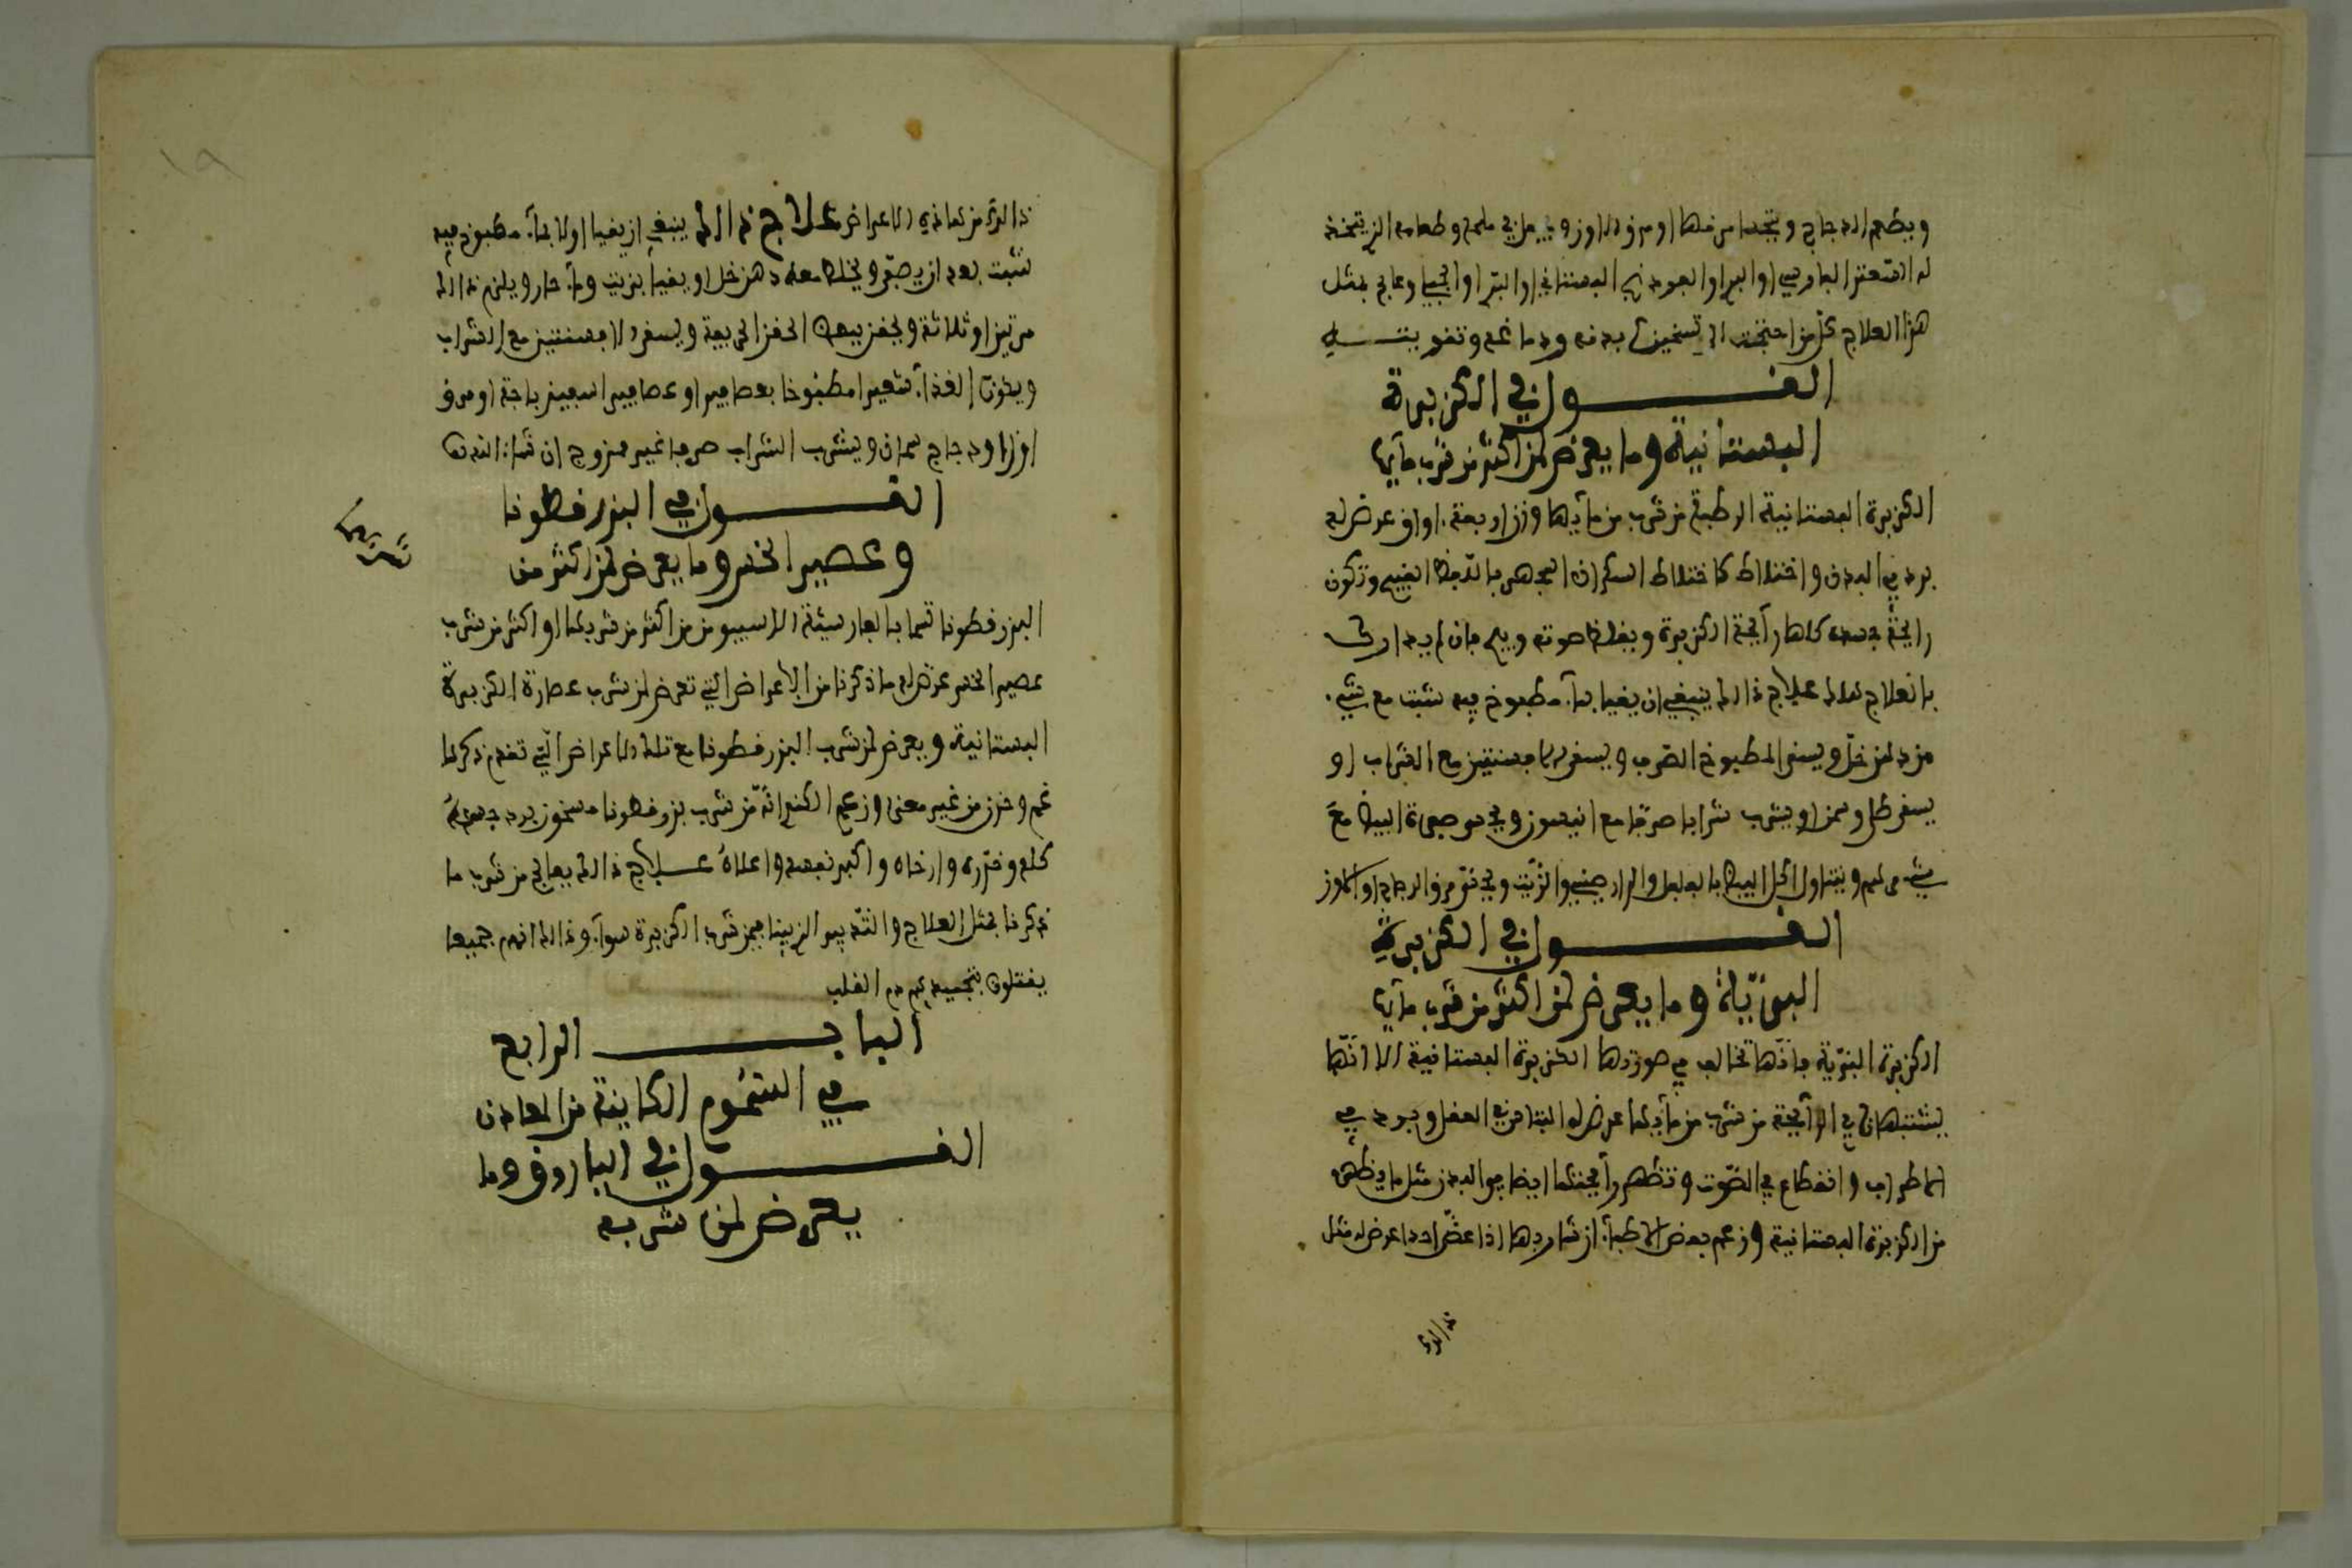 ويطعم الدجاج ويتحسا مرقها او مرق الاوز ويجعل في ملحه وطعامه الذي يتخذ
له الصعتر الفارسي او البري او الفودنج البستاني او البري او الجبلي وعالج بمثل
هذا العلاج كل من احتجت الى تسخين بدنه ودماغه وتقويته
القول في الكزبرة
البستانية وما يعرض لمن اكثر من شرب مايها
الكزبرة البستانية الرطبة من شرب من مآيها وزن اربعة اواق عرض له
برد في البدن واختلاط كاختلاط السكران المجاهر باللفظ القبيح وتكون
رايحة جسده كلها رآيحة الكزبرة ويغلظ صوته ويبح فان لم يدارك
بالعلاج هلك علاج ذالك ينبغي ان يقيا بمآء مطبوخ فيه شبت مع شيء
من دهن خل ويسقى المطبوخ الصرف ويسقى الافسنتين مع الشراب او
يسقى طلا وسمن او يشرب شرابا صرفا مع انيسون ويحسو صفرة البيض مع
شيء من ملح ويتناول اكل البيض بالفلفل والدارصيني والزيت ويحسى مرق الدجاج او الاوز
القول في الكزبرة
البرّيّة وما يعرض لمن اكثر من شرب مآيها
الكزبرة البرّيّة فانّها تخالف في صورتها الكزبرة البستانية الا انّها
يشتبهان في الرآيحة من شرب من مآيها عرض له البتا من في العقل وبرد في
الاطراف وانقطاع في الصّوت وتظهر رآيحتها ايضا في البدن مثل ما يظهر
من الكزبرة البستانية وزعم بعض الاطبآء ان شاربها اذا عضّ احدا عرض له مثل
ذالك
ذالك من هاذه الاعراض علاج ذالك ينبغي ان يقيا اولا بمآء مطبوخ فيه
شبت بعد ان يصفّى ويخلط معه دهن خل او يقيا بزيت ومآء حار ويلزم ذالك
مرتين او ثلاثة ويحقن ببعض الحقن الحريفة ويسقى الافسنتين مع الشراب
ويكون الغذآء شعيرا مطبوخا بعصافير او عصافير اسفيذباجة او مرق
اوز او دجاج سمان ويشرب الشراب صرفا غير ممزوج ان شاء الله
القول في البزر قطونا
وعصير الخس وما يعرض لمن اكثر منه
البزر قطونا تسما بالفارسيّة الاسبيوس من اكثر من شربها او اكثر من شرب
عصير الخس عرض له ما ذكرنا من الاعراض التي تعرض لمن شرب عصارة الكزبرة
البستانية ويعرض لمن شرب البزر قطونا مع تلك الاعراض الّتي تقدم ذكرها
غم وحزن من غير معنى وزعم الكندي انّه من شرب بزر قطونا مسحوق برد جسده
كله وخدّره وارخاه واكبر نفسه واعلاه علاج ذالك يعالج من شرب ما
ذكرنا بمثل العلاج والتدبير الذي بينا فيمن شرب الكزبرة سوآء وذالك انهم جميعا
يقتلون بتجميدهم دم القلب
الباب الرابع
في السّموم الكاينة من المعادن
القول في الباروق وما
يعرض لمن شربه